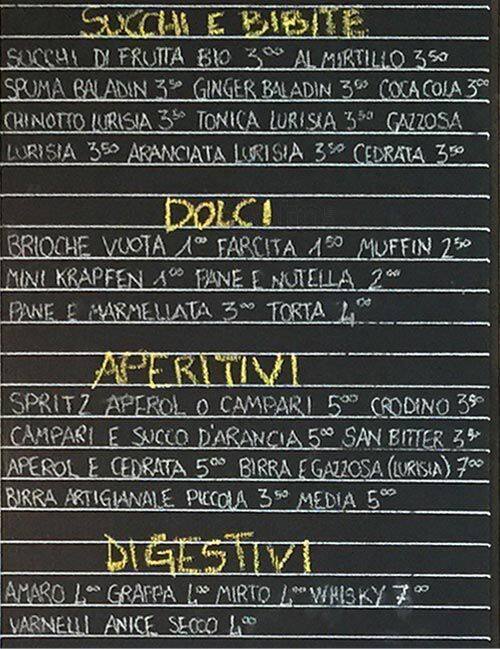 SUCCHI E BIBITE
SUCCHI DI FRUTTA BIO 3⁰⁰ AL MIRTILLO 3⁵⁰
SPUMA BALADIN 3⁵⁰ GINGER BALADIN 3⁵⁰ COCA COLA 3⁰⁰
CHINOTTO LURISIA 3⁵⁰ TONICA LURISIA 3⁵⁰ GAZZOSA
LURISIA 3⁵⁰ ARANCIATA LURISIA 3⁵⁰ CEDRATA 3⁵⁰
DOLCI
BRIOCHE VUOTA 1⁰⁰ FARCITA 1⁵⁰ MUFFIN 2⁵⁰
MINI KRAPFEN 1⁰⁰ PANE E NUTELLA 2⁰⁰
PANE E MARMELLATA 3⁰⁰ TORTA 4⁰⁰
APERITIVI
SPRITZ APEROL O CAMPARI 5⁰⁰ CRODINO 3⁵⁰
CAMPARI E SUCCO D'ARANCIA 5⁰⁰ SAN BITTER 3⁵⁰
APEROL E CEDRATA 5⁰⁰ BIRRA E GAZZOSA (LURISIA) 7⁰⁰
BIRRA ARTIGIANALE PICCOLA 3⁵⁰ MEDIA 5⁰⁰
DIGESTIVI
AMARO 4⁰⁰ GRAPPA 4⁰⁰ MIRTO 4⁰⁰ WHISKY 7⁰⁰
VARNELLI ANICE SECCO 4⁰⁰